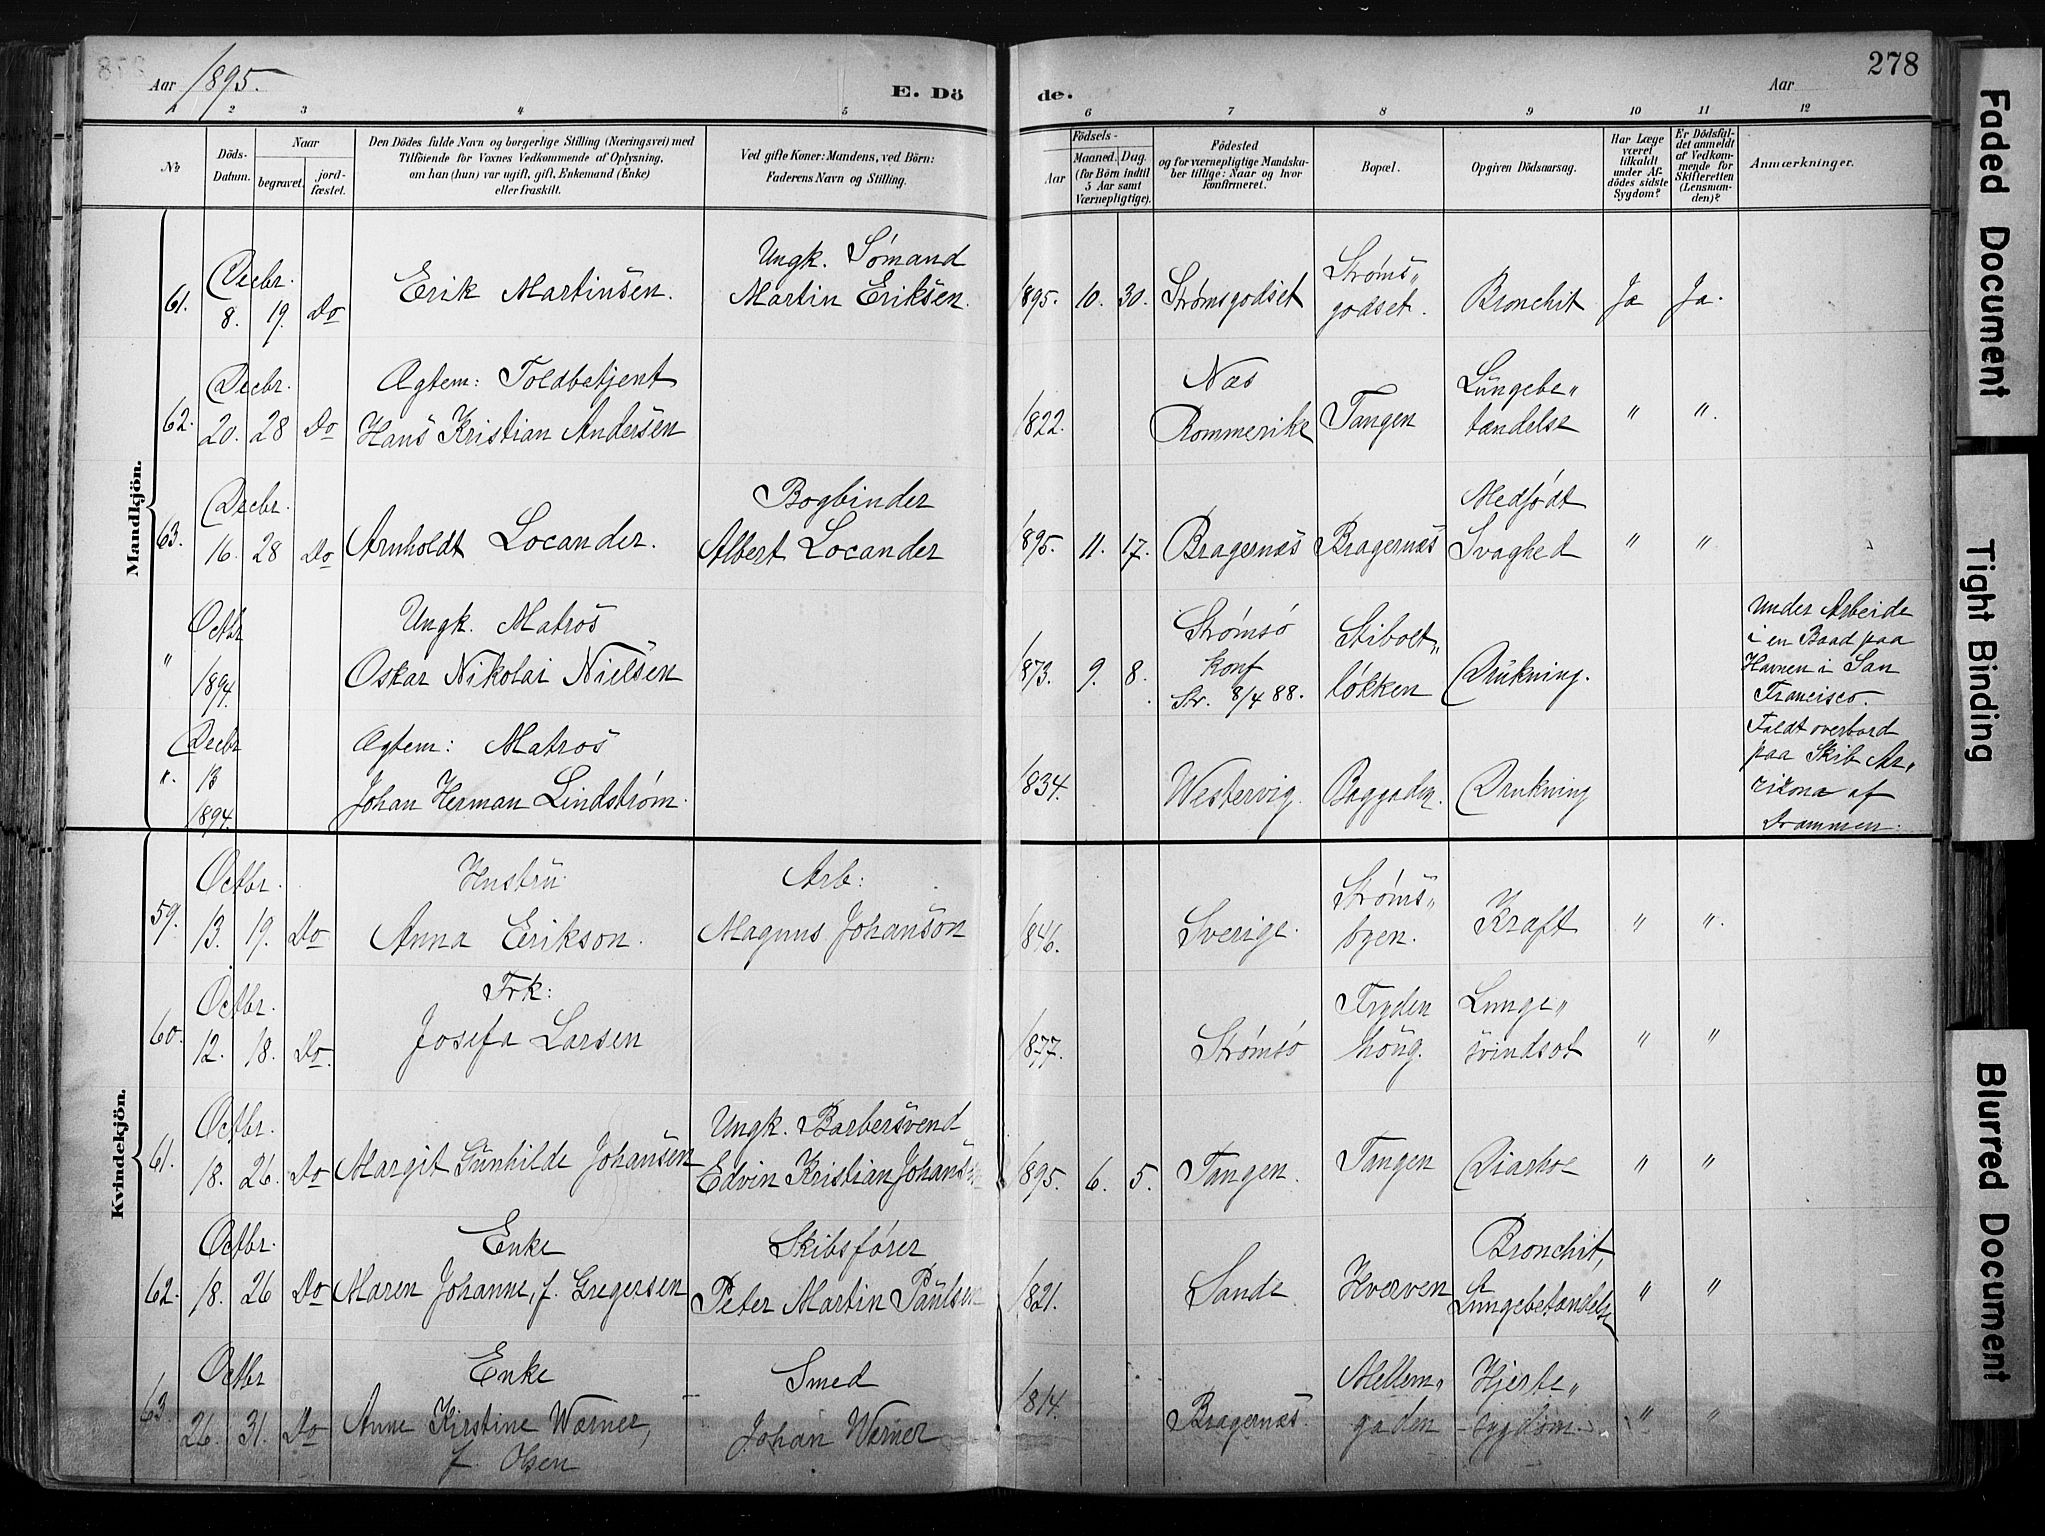 Aar 1895.
E. Dö de.
Aar
278
1 2 3 4 5 6 7 8 9 10 11 12
№
Döds-Datum.
Naar
begravet.
jord-fæstet.
Den Dödes fulde Navn og borgerlige Stilling (Næringsvei) med
Tilföiende for Voxnes Vedkommende af Oplysning,
om han (hun) var ugift, gift, Enkemand (Enke)
eller fraskilt.
Ved gifte Koner: Mandens, ved Börn:
Faderens Navn og Stilling.
Födsels-
Aar
Maaned. Dag.
(for Börn indtil
5 Aar samt
Værnepligtige).
Födested
og for værnepligtige Mandska-
ber tillige: Naar og hvor
konfirmeret.
Bopæl.
Opgiven Dödsaarsag.
Har Læge
været
tilkaldt
under Af-
dödes sidste
Sygdom?
Er Dödsfal-
det anmeldt
af Vedkom-
mende for
Skifteretten
(Lensman-
den)?
Anmærkninger.
Mandkjön.
61. Decbr. 8. 19. Do
Erik Martinsen.
Ungk. Sømand
Martin Eriksen.
1895. 10. 30. Strømsgodset
Strøms„
godset.
Bronchit Ja Ja.
62. Decbr. 20. 28 Do
Ægtem: Toldbetjent
Hans Kristian Andersen
1822.
Næs
Rommerike
Tangen
Lungebe„
tændelse
" ".
63. Decbr. 16. 28 Do
Arnholdt Locander.
Bogbinder
Albert Locander
1895. 11. 17. Bragernæs Bragernæs
Medfødt
Svaghed
" "
" Octbr 1894.
Ungk. Matros
Oskar Nikolai Nielsen
1873. 9. 8.
Strømsø
konf
Str. 8/4 88.
Stibolt„
løkken
Drukning.
Under Arbeide
i en Baad paa
Havnen i San
Francisco.
". Decbr 13 1894.
Ægtem: Matros
Johan Herman Lindstrøm.
1834. Westervig. Baggaden. Drukning
Faldt overbord
paa Skib Ar„
rizona af
Drammen.
Kvindekjön.
59. Octbr. 13. 19. Do
Hustru
Anna Erikson.
Arb:
Magnus Johanson
1846. Sverige.
Strøms„
byen.
Kraft " ".
60. Octbr. 12. 18. Do.
Frk:
Josefa Larsen
1877. Strømsø
Tryden
høug.
Lunge„
svindsot
" "
61. Octbr. 18. 26. Do
Margit Gunhilde Johansen
Ungk. Barbersvend
Edvin Kristian Johansen
1895. 6. 5. Tangen. Tangen Diarhoe " "
62. Octbr. 18. 26 Do
Enke
Maren Johanne, f. Gregersen
Skibsfører
Peter Martin Paulsen
1821. Sande. Hværven
Bronchit,
Lungebetændelse
" "
63. Octbr 26. 31. Do
Enke
Anne Kirstine Wærner,
f. Olsen
Smed
Johan Wærner
1814. Bragernæs.
Mellem„
gaden
Hjerte„
sygdom.
" "
Faded Document
Tight Binding
Blurred Document